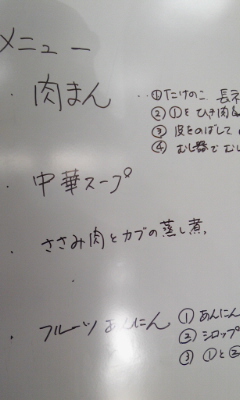 メニュー
・肉まん ‥①たけのこ 長ネ
②①を ひき肉
③皮をのばして
④むし器でむし
・中華スープ
・ささみ肉とカブの蒸し煮
・フルーツあんにん ①あんにん
②シロップ
③①と②